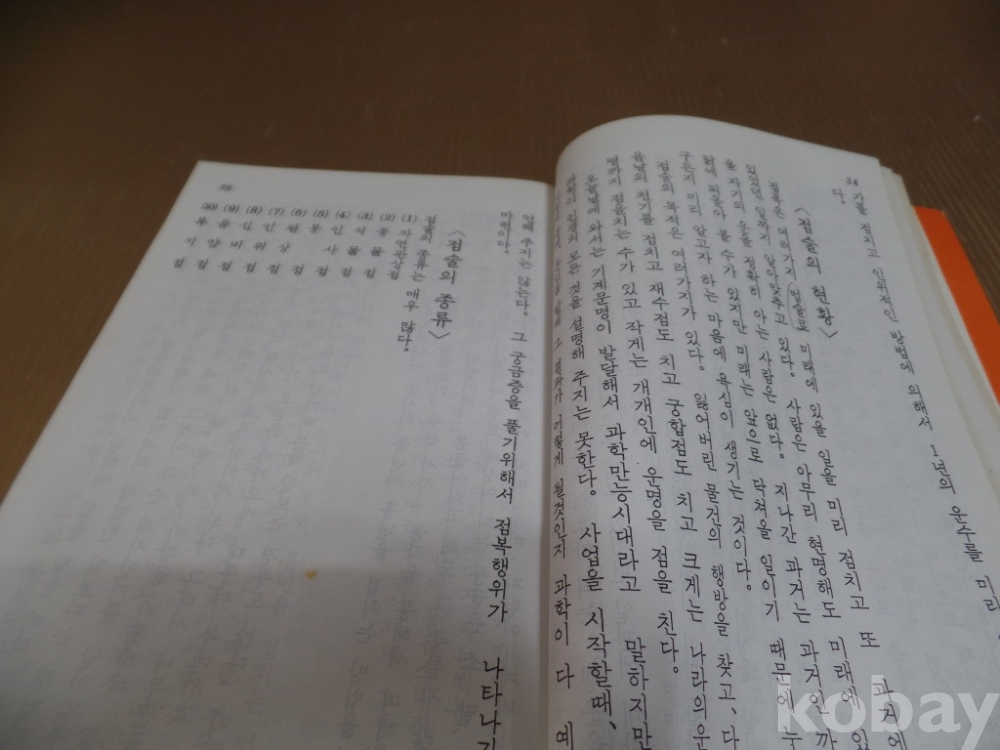 기를 점치고 인위적인 방법에 의해서 1년의 운수를 미리
다.
〈점술의 현황〉
점복은 여러가지 방법으로 미래에 있을 일을 미리 점치고 또 과거에
있었던 일까지 알아맞추고 있다. 사람은 아무리 현명해도 미래에 있
을 자기의 운을 정확히 아는 사람은 없다. 지나간 과거는 과거인 까
닭에 되돌아 볼 수가 있지만 미래는 앞으로 닥쳐올 일이기 때문에 누
구든지 미리 알고자 하는 마음에 욕심이 생기는 것이다.
점술의 목적은 여러가지가 있다. 잃어버린 물건의 행방을 찾고, 다
음날의 천기를 점치고 재수점도 치고 궁합점도 치고 크게는 나라의 운
명까지 점을치는 수가 있고 작게는 개개인에 운명을 점을 친다.
오늘날에 와서는 기계문명이 발달해서 과학만능시대라고 말하지만
과학이 인생의 모든 것을 설명해 주지는 못한다. 사업을 시작할때,
그 결과가 어떻게 될것인지 과학이 다 예
주지는 않는다. 그 궁금증을 풀기위해서 점복행위가 나타나기
마련이다.
〈점술의 종류〉
점술의 종류는 매우 많다.
(1) 자연현상점
(2) 동물점
(3) 식물점
(4) 인사점
(5) 몽점
(6) 관상점
(7)
(8)
(9)
(10)
kobay